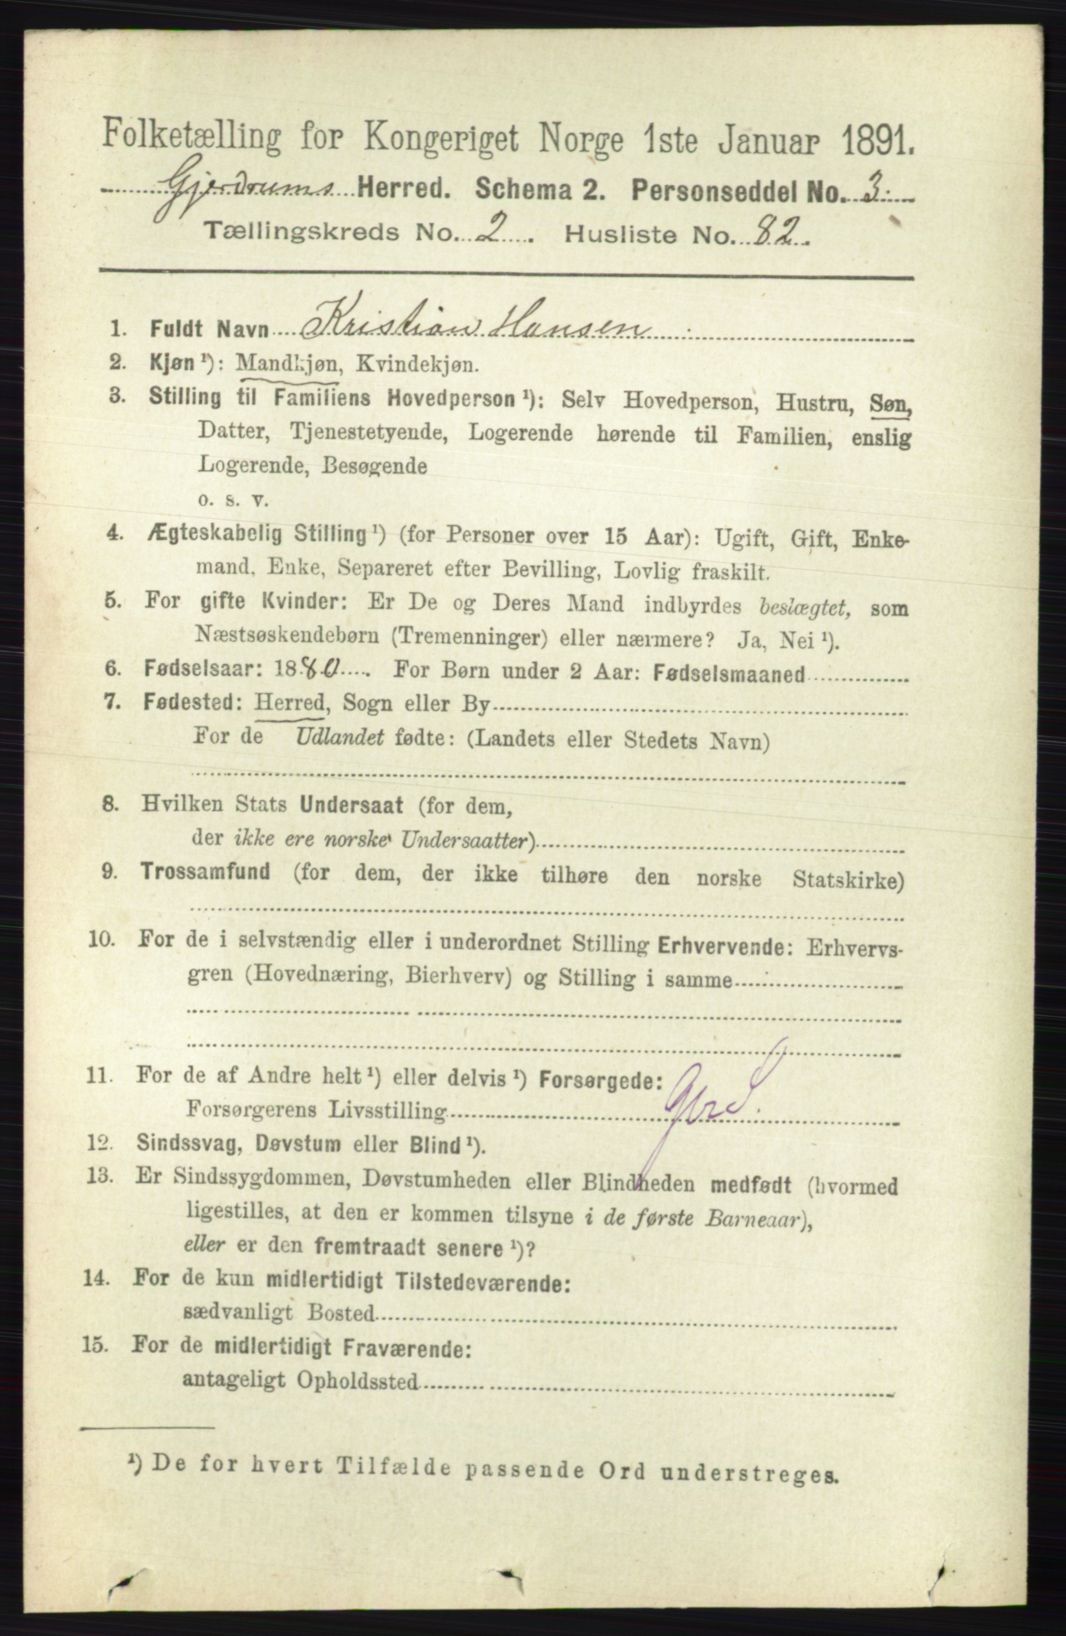 Folketælling for Kongeriget Norge 1ste Januar 1891.
Gjerdrums Herred. Schema 2. Personseddel No. 3.
Tællingskreds No. 2. Husliste No. 82.
1. Fuldt Navn Kristian Hansen
2. Kjøn ¹): Mandkjøn, Kvindekjøn.
3. Stilling til Familiens Hovedperson ¹): Selv Hovedperson, Hustru, Søn,
Datter, Tjenestetyende, Logerende hørende til Familien, enslig
Logerende, Besøgende
o. s. v.
4. Ægteskabelig Stilling ¹) (for Personer over 15 Aar): Ugift, Gift, Enke-
mand, Enke, Separeret efter Bevilling, Lovlig fraskilt.
5. For gifte Kvinder: Er De og Deres Mand indbyrdes beslægtet, som
Næstsøskendebørn (Tremenninger) eller nærmere? Ja, Nei ¹).
6. Fødselsaar: 1880. For Børn under 2 Aar: Fødselsmaaned
7. Fødested: Herred, Sogn eller By
For de Udlandet fødte: (Landets eller Stedets Navn)
8. Hvilken Stats Undersaat (for dem,
der ikke ere norske Undersaatter)
9. Trossamfund (for dem, der ikke tilhøre den norske Statskirke)
10. For de i selvstændig eller i underordnet Stilling Erhvervende: Erhvervs-
gren (Hovednæring, Bierhverv) og Stilling i samme
11. For de af Andre helt ¹) eller delvis ¹) Forsørgede:
Forsørgerens Livsstilling
12. Sindssvag, Døvstum eller Blind ¹).
13. Er Sindssygdommen, Døvstumheden eller Blindheden medfødt (hvormed
ligestilles, at den er kommen tilsyne i de første Barneaar),
eller er den fremtraadt senere ¹)?
14. For de kun midlertidigt Tilstedeværende:
sædvanligt Bosted
15. For de midlertidigt Fraværende:
antageligt Opholdssted
¹) De for hvert Tilfælde passende Ord understreges.